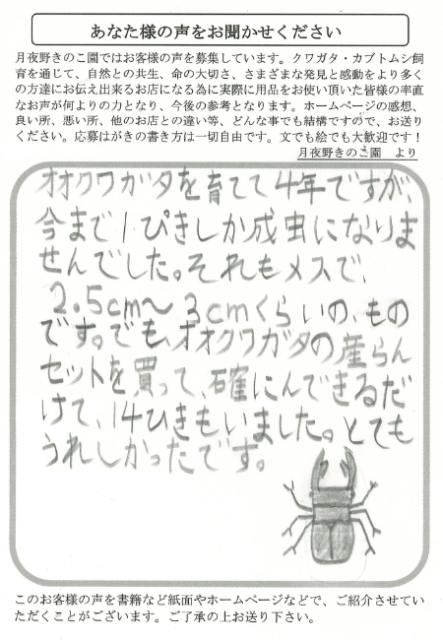 あなた様の声をお聞かせください
月夜野きのこ園ではお客様の声を募集しています。クワガタ・カブトムシ飼
育を通じて、自然との共生、命の大切さ、さまざまな発見と感動をより多く
の方達にお伝え出来るお店になる為に実際に用品をお使い頂いた皆様の率直
なお声が何よりの力となり、今後の参考となります。ホームページの感想、
良い所、悪い所、他のお店との違い等、どんな事でも結構ですので、お送り
ください。応募はがきの書き方は一切自由です。文でも絵でも大歓迎です！
月夜野きのこ園　より
オオクワガタを育てて4年ですが、
今まで1ぴきしか成虫になりま
せんでした。それもメスで、
2.5cm〜3cmくらいの、もの
です。でも、オオクワガタの産らん
セットを買って、確にんできるだ
けで、14ひきもいました。とても
うれしかったです。
このお客様の声を書籍など紙面やホームページなどで、ご紹介させてい
ただくことがございます。ご了承の上お送り下さい。